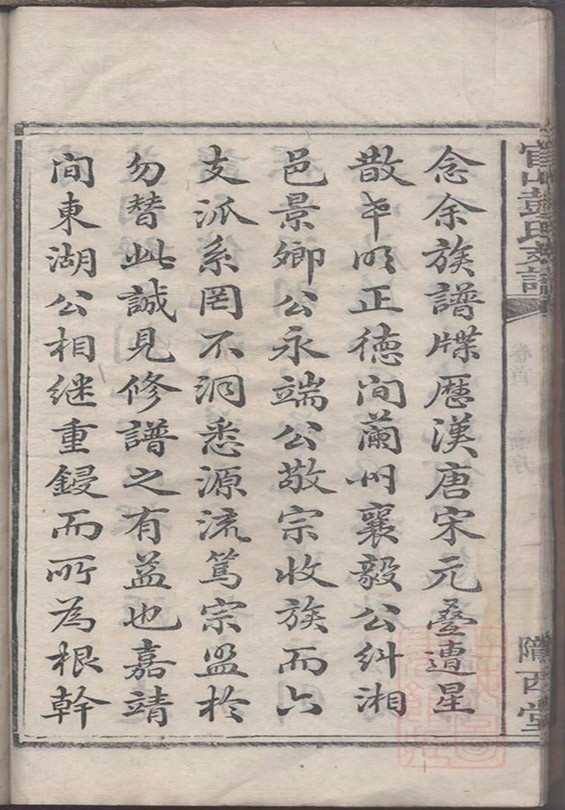 官山彭氏支譜
卷首
隴西堂
念余族譜牒歷漢唐宋元疊遭星
散明正德間蘭州襄毅公糾湘
邑景卿公永端公敬宗收族而六
支派系罔不洞悉源流篤宗盟於
勿替此誠見修譜之有益也嘉靖
間東湖公相継重鋟而所為根幹